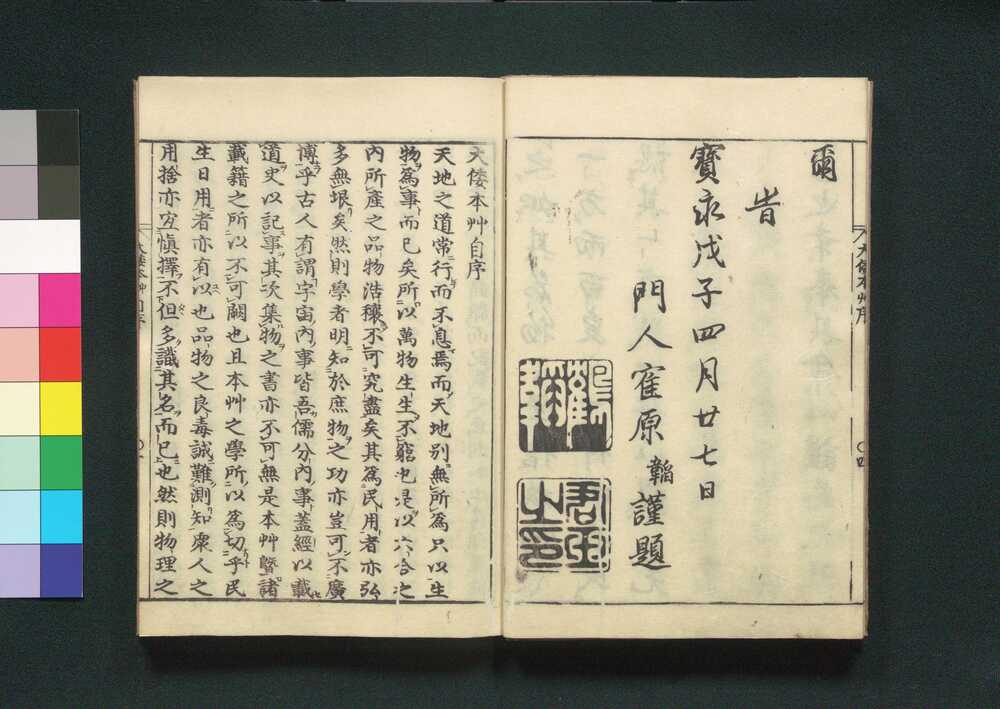 爾
旹
寳永戊子四月廿七日
門人寉原韜謹題
大倭本艸序
〇四
大倭本艸自序
天地之道常行而不息焉而天地別無所爲只以生
物爲事而已矣所以萬物生生不窮也是以六合之
內所產之品物浩穰不可究盡矣其爲民用者亦弘
多無垠矣然則學者明知於庶物之功亦豈可不廣
博乎古人有謂宇宙內事皆吾儒分內事蓋經以載
道史以記事其次集物之書亦不可無是本艸曁諸
載籍之所以不可闕也且本艸之學所以爲切乎民
生日用者亦有以也品物之良毒誠難測知衆人之
用捨亦宜愼擇不但多識其名而已也然則物理之
〇一